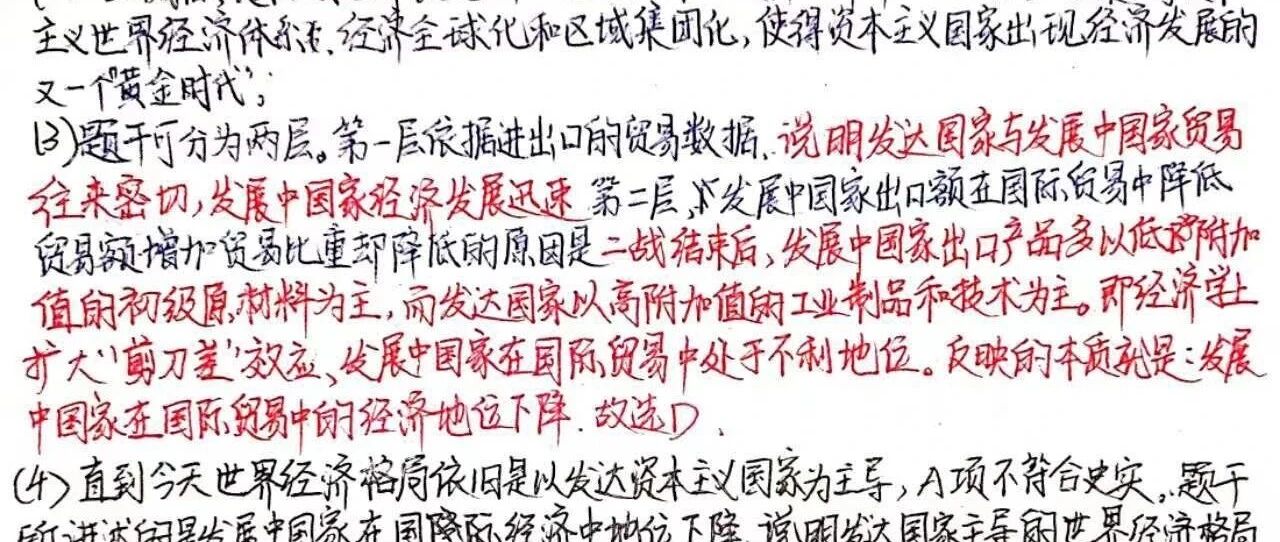 主义世界经济体系、经济全球化和区域集团化,使得资本主义国家出现经济发展的
又一个"黄金时代";
(3)题干可分为两层。第一层依据进出口的贸易数据.说明发达国家与发展中国家贸易
往来密切,发展中国家经济发展迅速 第二层、发展中国家出口额在国际贸易中降低
贸易额增加贸易比重却降低的原因是二战结束后,发展中国家出口产品多以低附加
值的初级原材料为主,而发达国家以高附加值的工业制品和技术为主。即经济学上
扩大"剪刀差"效应、发展中国家在国际贸易中处于不利地位。反映的本质就是:发展
中国家在国际贸易中的经济地位下降.故选D.
(4)直到今天世界经济格局依旧是以发达资本主义国家为主导,A项不符合史实。题干
所讲述的是发展中国家在国际经济中地位下降.说明发达国家主导的世界经济格局